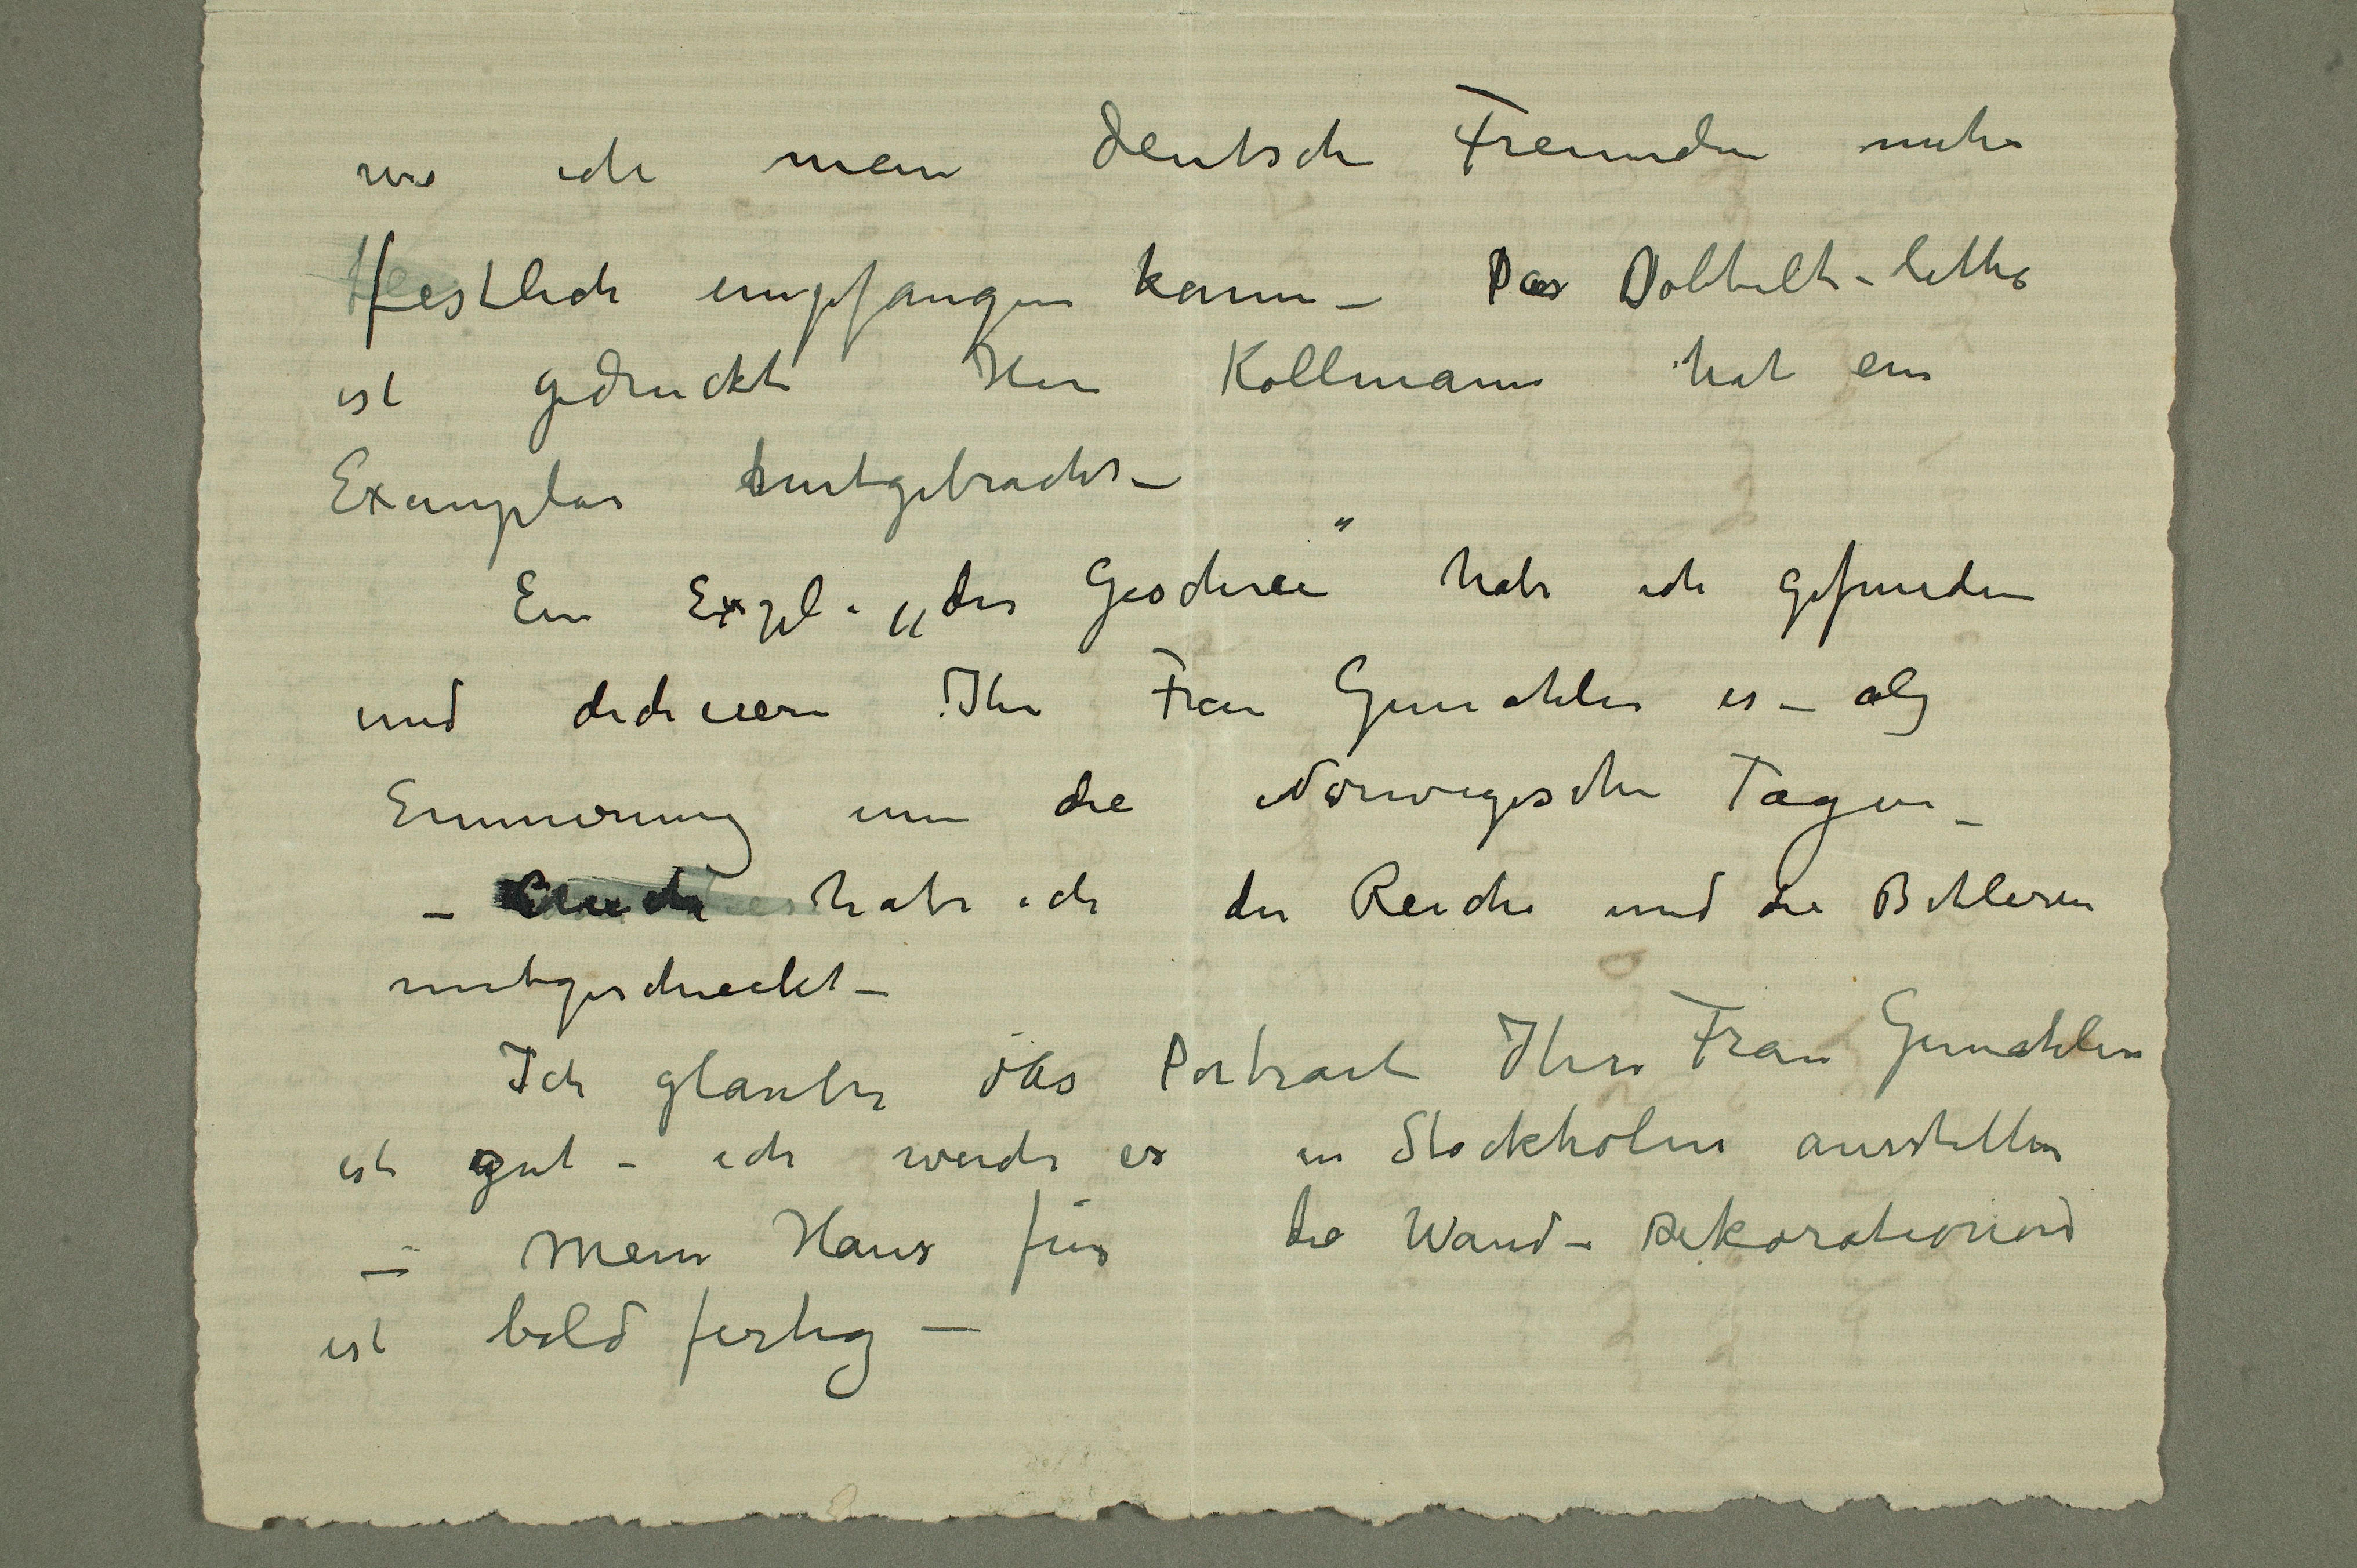 wo ich mein deutsche Freunden mehr
festlich empfangen kann – Das Dobbelt-litho
ist gedruckt Herr Kollmann hat ein
Exemplar mitgebracht –
Ein Expl. „des Geschrei“ habe ich gefunden
und dediciere Ihr Frau Gemahlin es – als
Errinnerung um die Norwegische Tagen –
– Auch habe ich der Reiche und die Betleren
mitgeschickt –
Ich glaube das Portrait Ihre Frau Gemahlin
ist gut – ich werde es in Stockholm ausstellen
– Mein Haus für die Wand-
ist bald fertig –